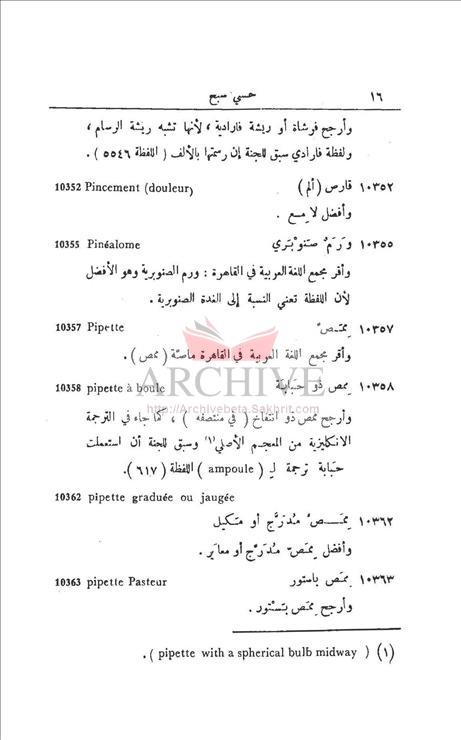 ١٦ حسني سبح
وأرجح فرشاة أو ريشة فارادية ، لأنها تشبه ريشة الرسام ،
ولفظة فارادي سبق للجنة إن رسمتها بالألف ( اللفظة ٥٥٤٦ ) .
١٠٣٥٢ قارص ( ألم ) 10352 Pincement (douleur)
وأفضل لامع .
١٠٣٥٥ وَرَمٌ صَنَوْبَري 10355 Pinéalome
وأقر مجمع اللغة العربية في القاهرة : ورم الصنوبرية وهو الأفضل
لأن اللفظة تعني النسبة إلى الغدة الصنوبرية .
١٠٣٥٧ مِمَصٌ 10357 Pipette
وأقر مجمع اللغة العربية في القاهرة ماصّة ( ممص ) .
ARCHIVE
١٠٣٥٨ مِمص ذو حَبَابَة 10358 pipette à boule
http://Archivebeta.Sakhrit.com
وأرجح ممص ذو انتفاخ ( في منتصفه ) ، كما جاء في الترجمة
الانكليزية من المعجم الأصلي(١) وسبق للجنة أن استعملت
حبَابة ترجمة لـ ( ampoule ) اللفظة ( ٦١٧ ) .
10362 pipette graduée ou jaugée
١٠٣٦٢ مِمَصٌ مُدَرَّج أو متكيل
وأفضل مِمَصّ مُدَرَّج أو معاير .
١٠٣٦٣ مِمَص باستور 10363 pipette Pasteur
وأرجح مِمَص بَسْتور .
(١) ( pipette with a spherical bulb midway ) .